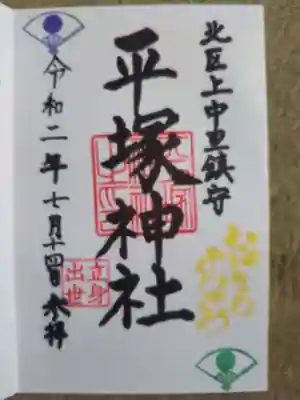 北区上中里鎮守
平塚神社
立身
出世
令和二年七月十四日参拝